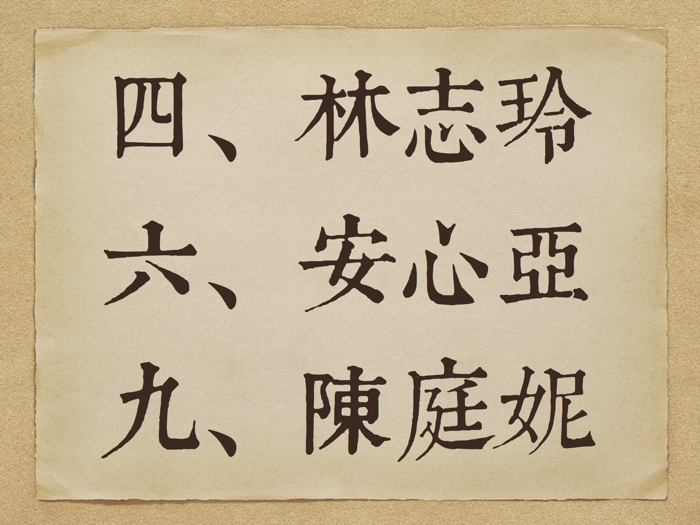 四、 林志玲
六、 安心亞
九、 陳庭妮